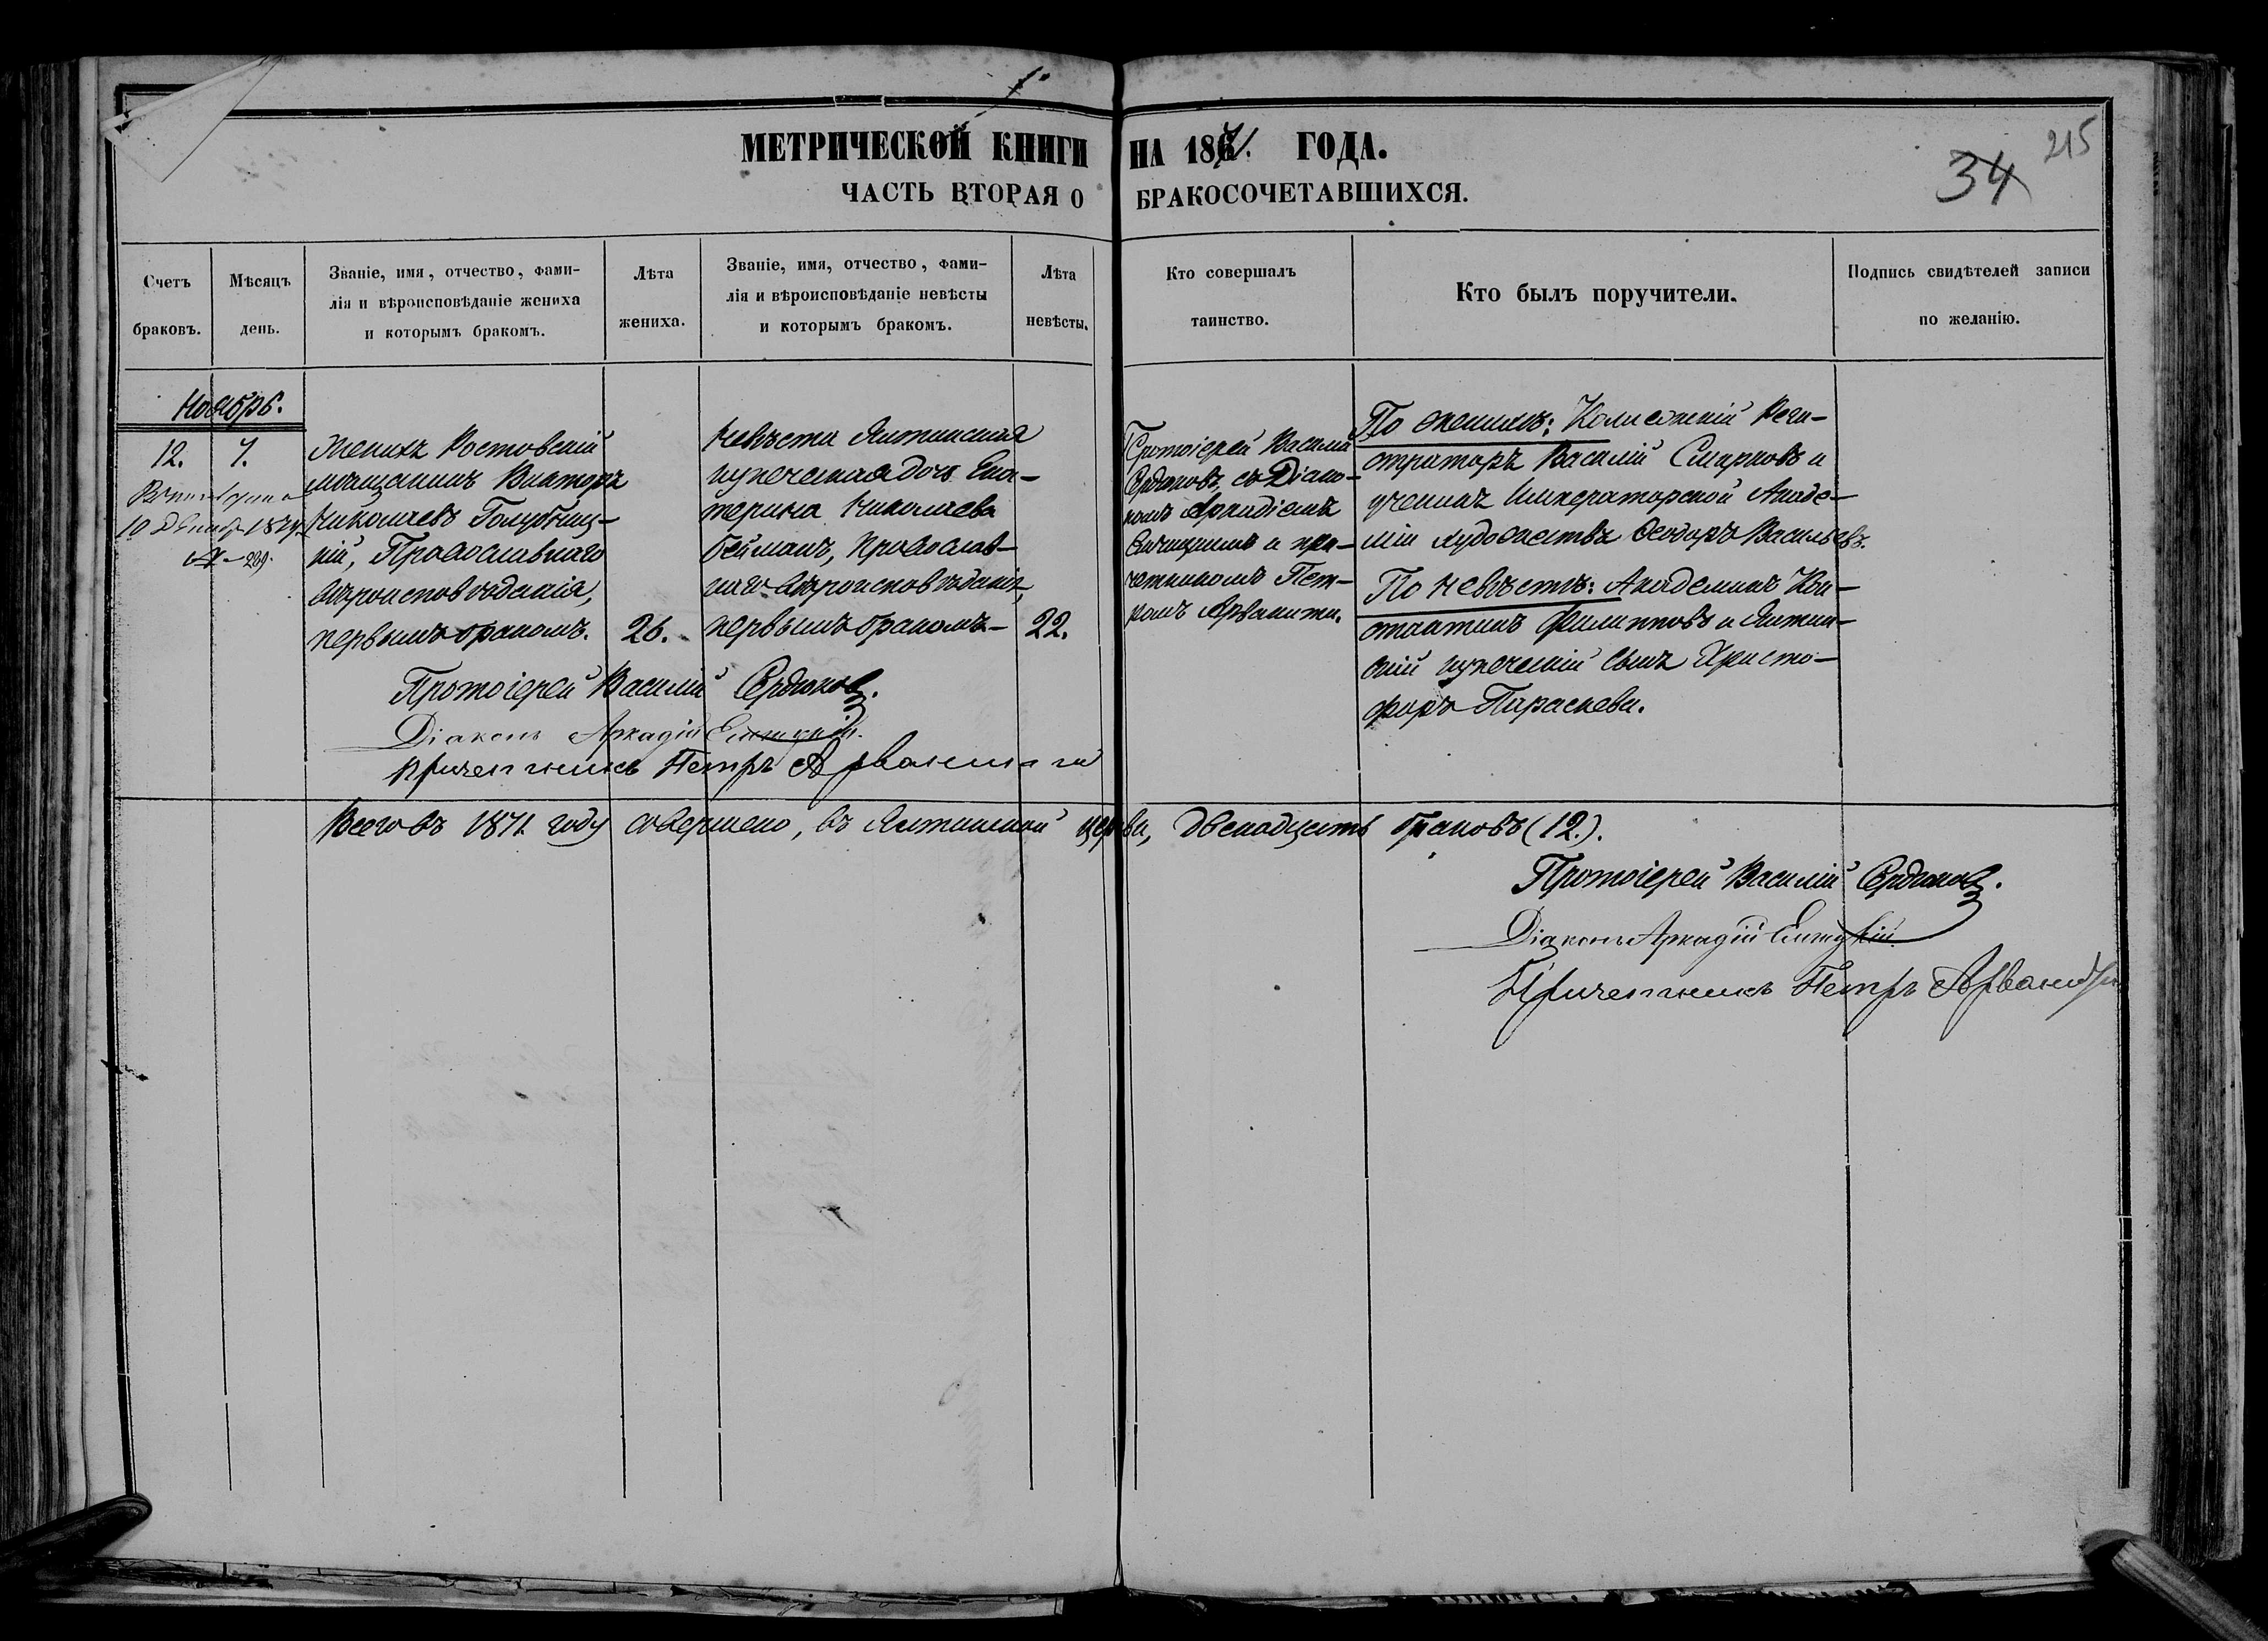 МЕТРИЧЕСКОЙ КНИГИ НА 1871. ГОДА.
215
34
ЧАСТЬ ВТОРАЯ О БРАКОСОЧЕТАВШИХСЯ.
Счетъ
браковъ.
Мѣсяцъ
день.
Званіе, имя, отчество, фами-
лія и вѣроисповѣданіе жениха
и которымъ бракомъ.
Лѣта
жениха.
Званіе, имя, отчество, фами-
лія и вѣроисповѣданіе невѣсты
и которымъ бракомъ.
Лѣта
невѣсты.
Кто совершалъ
таинство.
Кто былъ поручители.
Подпись свидѣтелей записи
по желанію.
Ноябрь.
12.
7.
10 Декабр
Женихъ Ростовскій
мѣщанинъ Викторъ
Николаевъ Голубниц-
кій, Православнаго
вѣроисповѣданія,
первымъ бракомъ.
26.
Невѣста Ялтинская
купеческая дочь Ека-
терина Николаева
Бейманъ, Православ-
наго вѣроисповѣданія,
первымъ бракомъ-
22.
Протоіерей Василій
Сердюковъ, съ Діако-
номъ Аркадіемъ
и при-
четникомъ Пет-
ромъ Арванити.
По женихѣ: Колежскій Реги-
страторъ Василій Смирновъ и
ученикъ Императорской Акаде-
міи художествъ Ѳеодоръ Васильевъ.
По невѣстѣ: Академикъ Кон-
стантинъ Филипповъ и Ялтин-
скій купеческій сынъ Христо-
форъ Параскева.
Протоіерей Василій Сердюковъ.
Діаконъ Аркадій
Причетникъ Петръ Арванити
Всего въ 1871 году совершено, въ Ялтинской церкви, двенадцать браковъ (12.).
Протоіерей Василій Сердюковъ.
Діаконъ Аркадій
Причетникъ Петръ Арванити